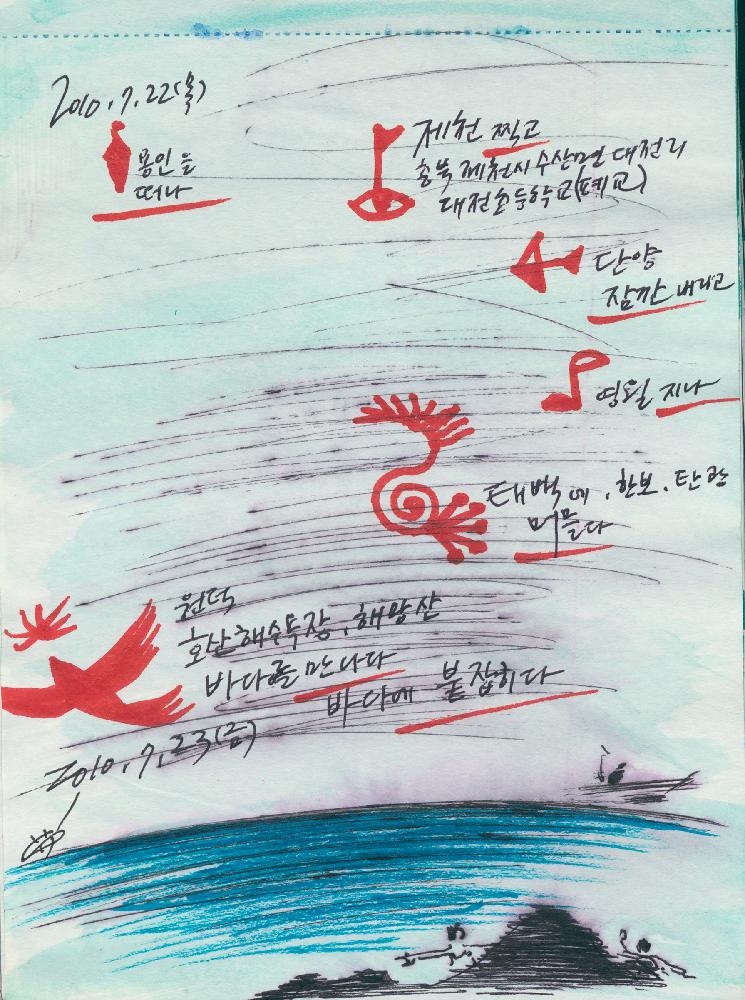 2010.7.22(목)
용인을
떠나
제천 찍고
충북 제천시 수산면 대전리
대전초등학교(폐교)
단양
잠깐 내리고
영월 지나
태백에, 한보, 탄광
머물다
원덕
호산해수욕장, 해망산
바다를 만나다
바다에 붙잡히다
2010.7.23(금)